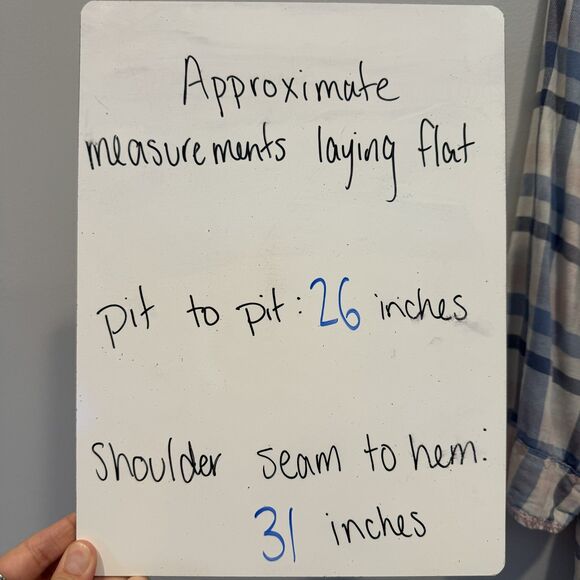 Approximate
measurements laying flat
pit to pit: 26 inches
shoulder seam to hem:
31 inches